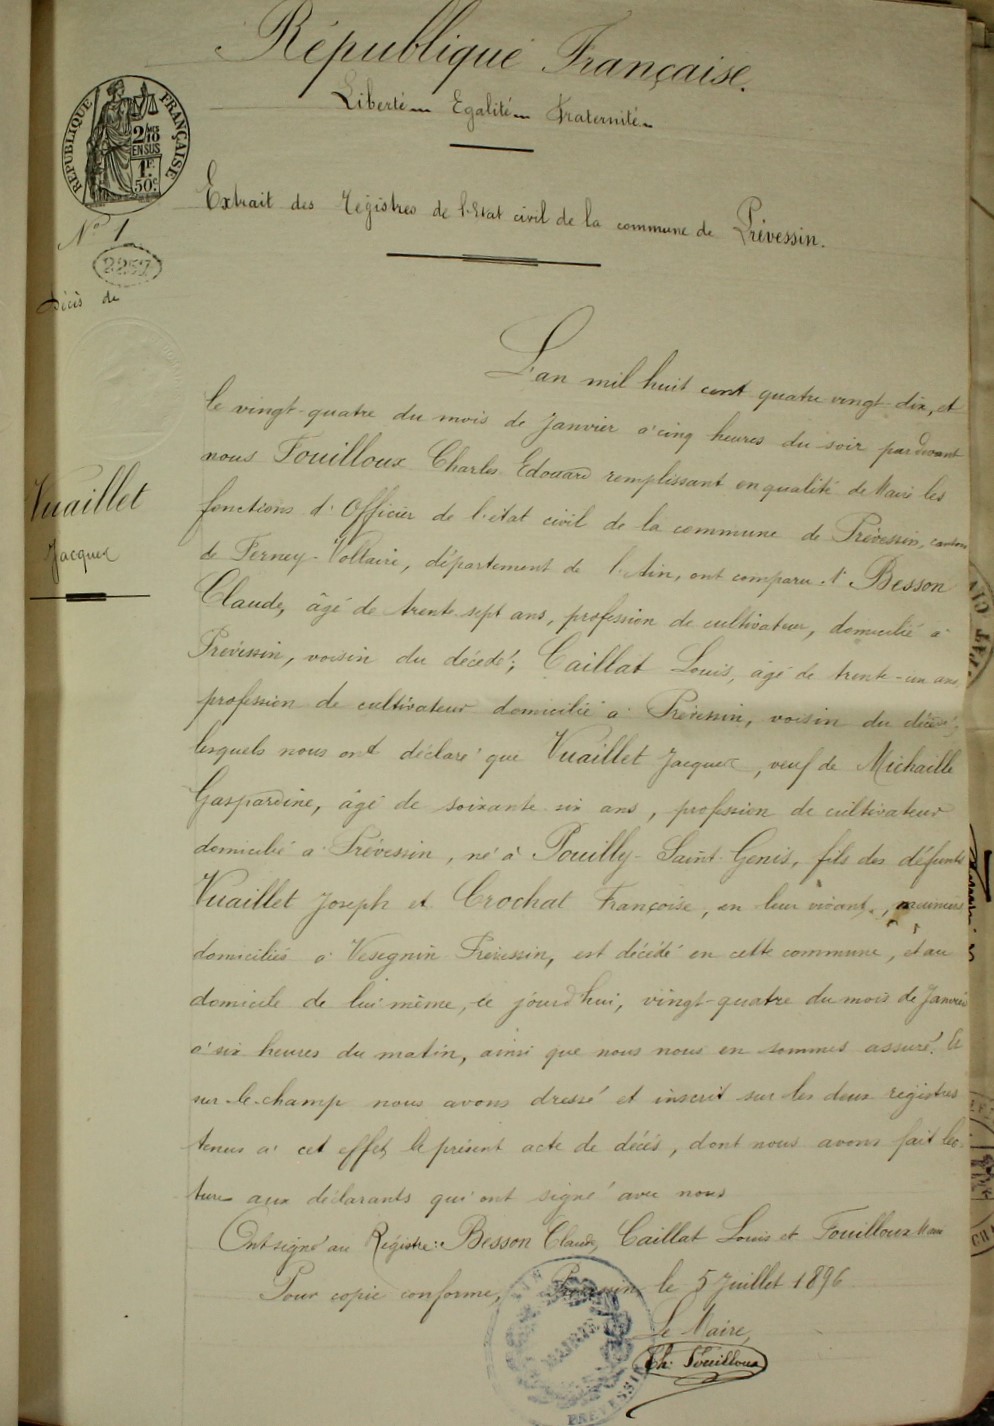 République Française.
Liberté – Egalité – Fraternité –
RÉPUBLIQUE FRANÇAISE
2/10
EN SUS
1F
50c
Extrait des Registres de l'Etat civil de la commune de Prévessin.
N° 1
2257
Décès de
Vuaillet
Jacques
L'an mil huit cent quatre vingt-dix, et
le vingt-quatre du mois de Janvier à cinq heures du soir pardevant
nous Fouilloux Charles Edouard remplissant en qualité de Maire les
fonctions d'Officier de l'état civil de la commune de Prévessin, canton
de Ferney-Voltaire, département de l'Ain, ont comparu: 1° Besson
Claude, âgé de trente-sept ans, profession de cultivateur, domicilié à
Prévessin, voisin du décédé; Caillat Louis, âgé de trente-un ans
profession de cultivateur domicilié à Prévessin, voisin du décédé;
lesquels nous ont déclaré que Vuaillet Jacques, veuf de Michaille
Gaspardine, âgé de soixante six ans, profession de cultivateur
domicilié à Prévessin, né à Pouilly-Saint-Genis, fils des défunts
Vuaillet Joseph et Crochat Françoise, en leur vivant, meuniers
domiciliés à Vesegnin Prévessin, est décédé en cette commune, et au
domicile de lui même, ce jourd'hui, vingt-quatre du mois de Janvier
à six heures du matin, ainsi que nous nous en sommes assuré. Et
sur-le-champ nous avons dressé et inscrit sur les deux registres
tenus à cet effet, le présent acte de décès, dont nous avons fait lec-
ture aux déclarants qui ont signé avec nous
Ont signé au Registre: Besson Claude, Caillat Louis et Fouilloux Maire
Pour copie conforme, Prévessin, le 5 Juillet 1896
Le Maire,
Ch. Fouilloux
MAIRIE
PREVESSIN